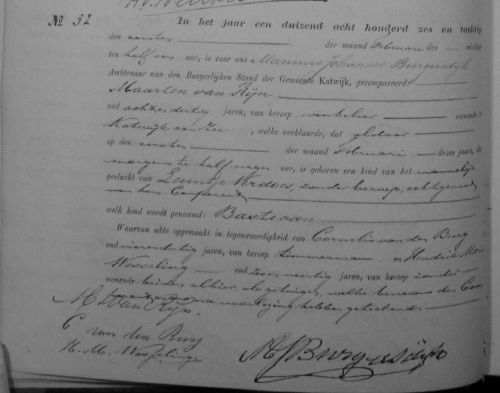 No. 32
In het jaar een duizend acht honderd zes en tachtig
den eersten der maand Februari des middag
ten half een ure, is voor ons Marinus Johannes Burgersdijk
Ambtenaar van den Burgerlijken Stand der Gemeente Katwijk, gecompareerd:
Maarten van Rijn
oud achtendertig jaren, van beroep winkelier wonende te
Katwijk aan Zee, welke verklaarde, dat aldaar
op den eersten der maand Februari dezes jaars, des
morgens te half negen ure, is geboren een kind van het mannelijk
geslacht van Leuntje Verdoes, zonder beroep, echtgenoot
van den Comparant
welk kind wordt genaamd: Bastiaan
Waarvan akte opgemaakt in tegenwoordigheid van Cornelis van der Burg
oud jaren, van beroep timmerman en Hendrik
Wesseling oud jaren, van beroep zonder
wonende beiden alhier, als getuigen, welke benevens den Com
voorlezing hebben geteekend.
M van Rijn.
C van den Burg
H. M. Wesseling
MJBurgersdijk